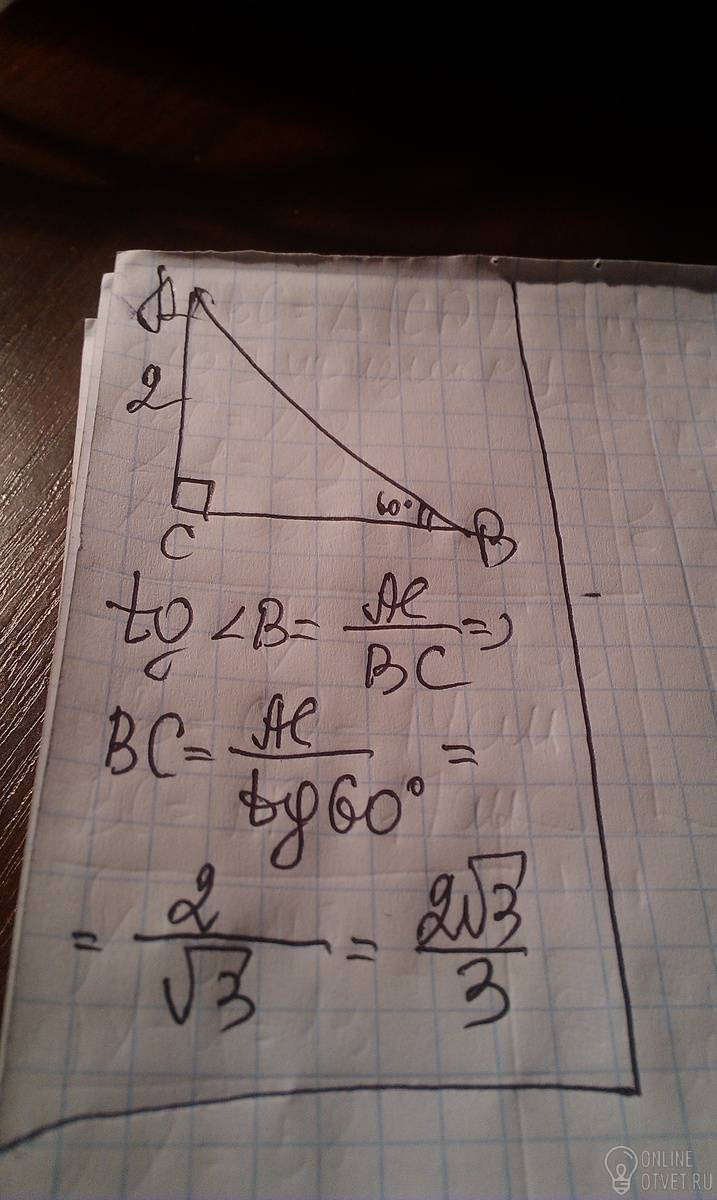 A
2
60°
C
B
tg ∠B = AC/BC =>
BC = AC/tg 60° =
= 2/√3 = 2√3/3
ONLINE
OTVET.RU